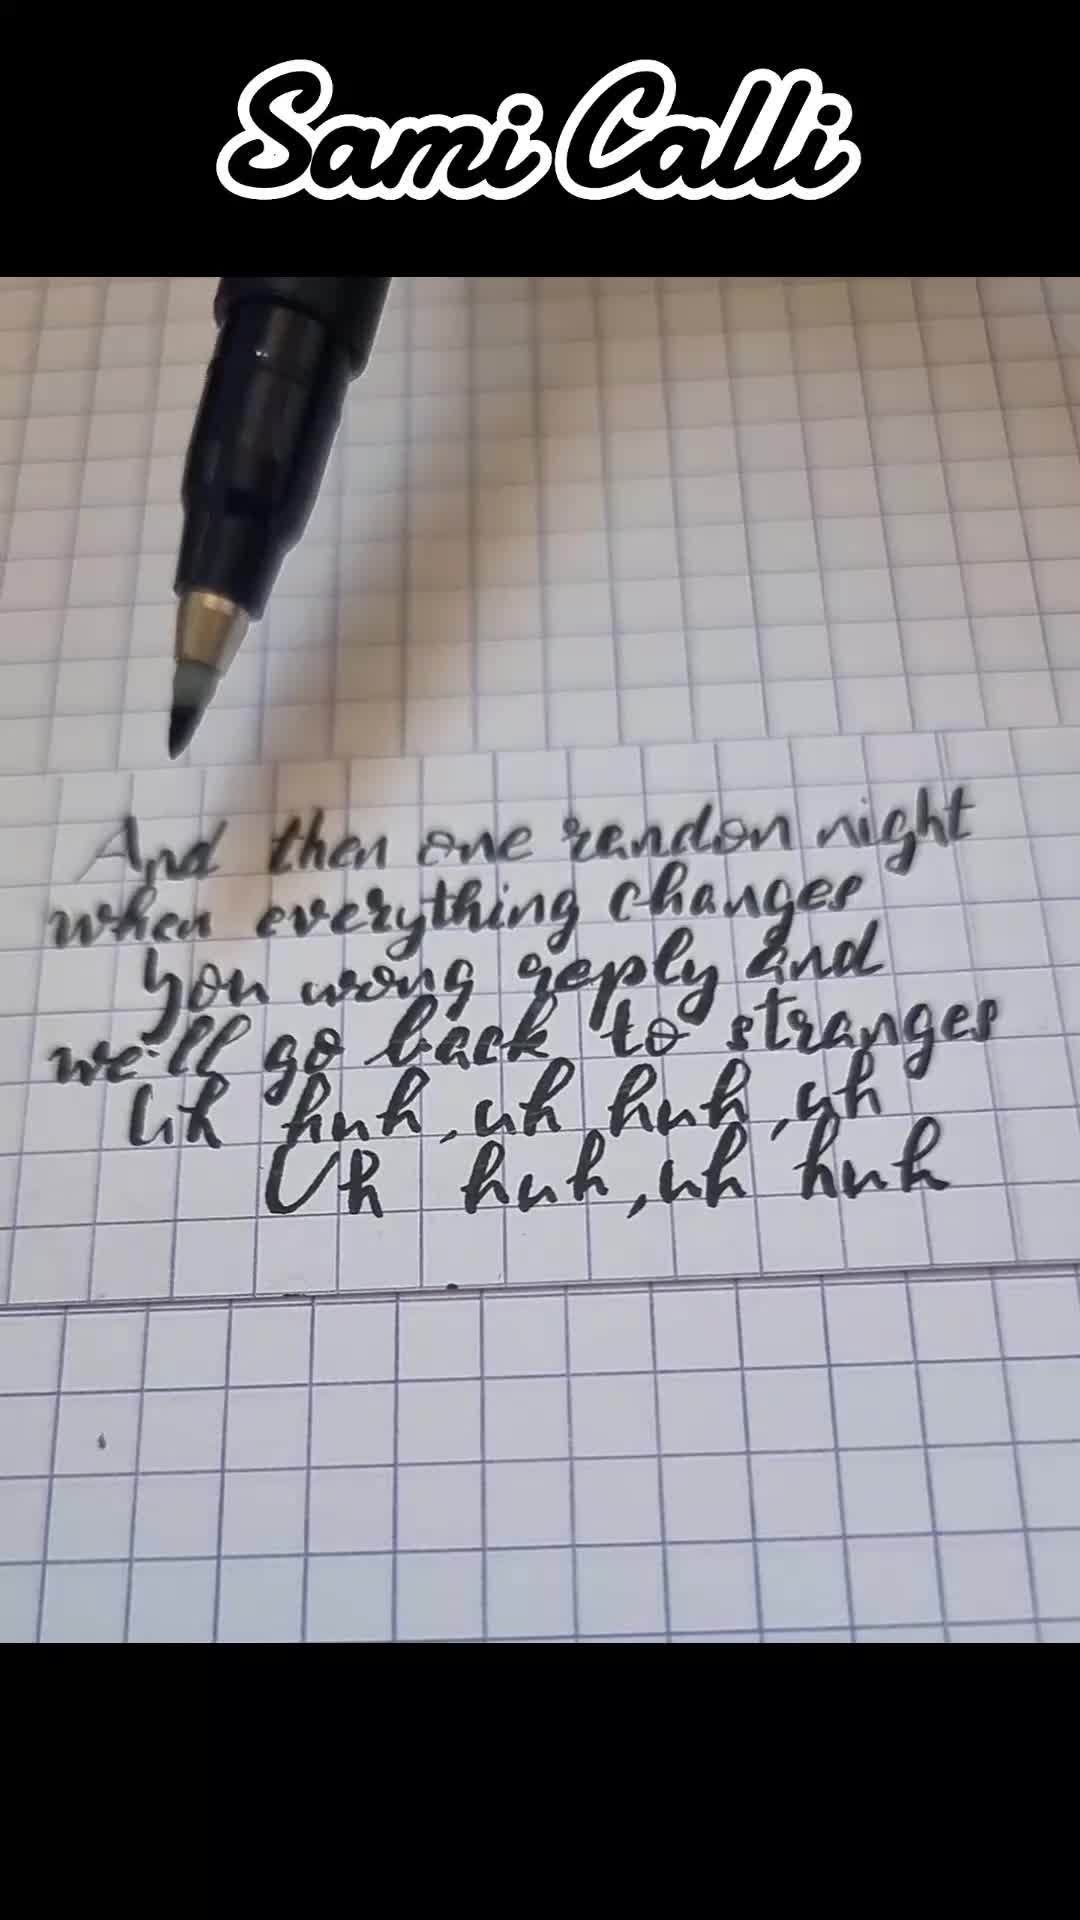 Sami Calli
And then one randon night
when everything changes
you wrong reply and
we'll go back to stranges
Uh huh, uh huh, uh
Uh huh, uh huh